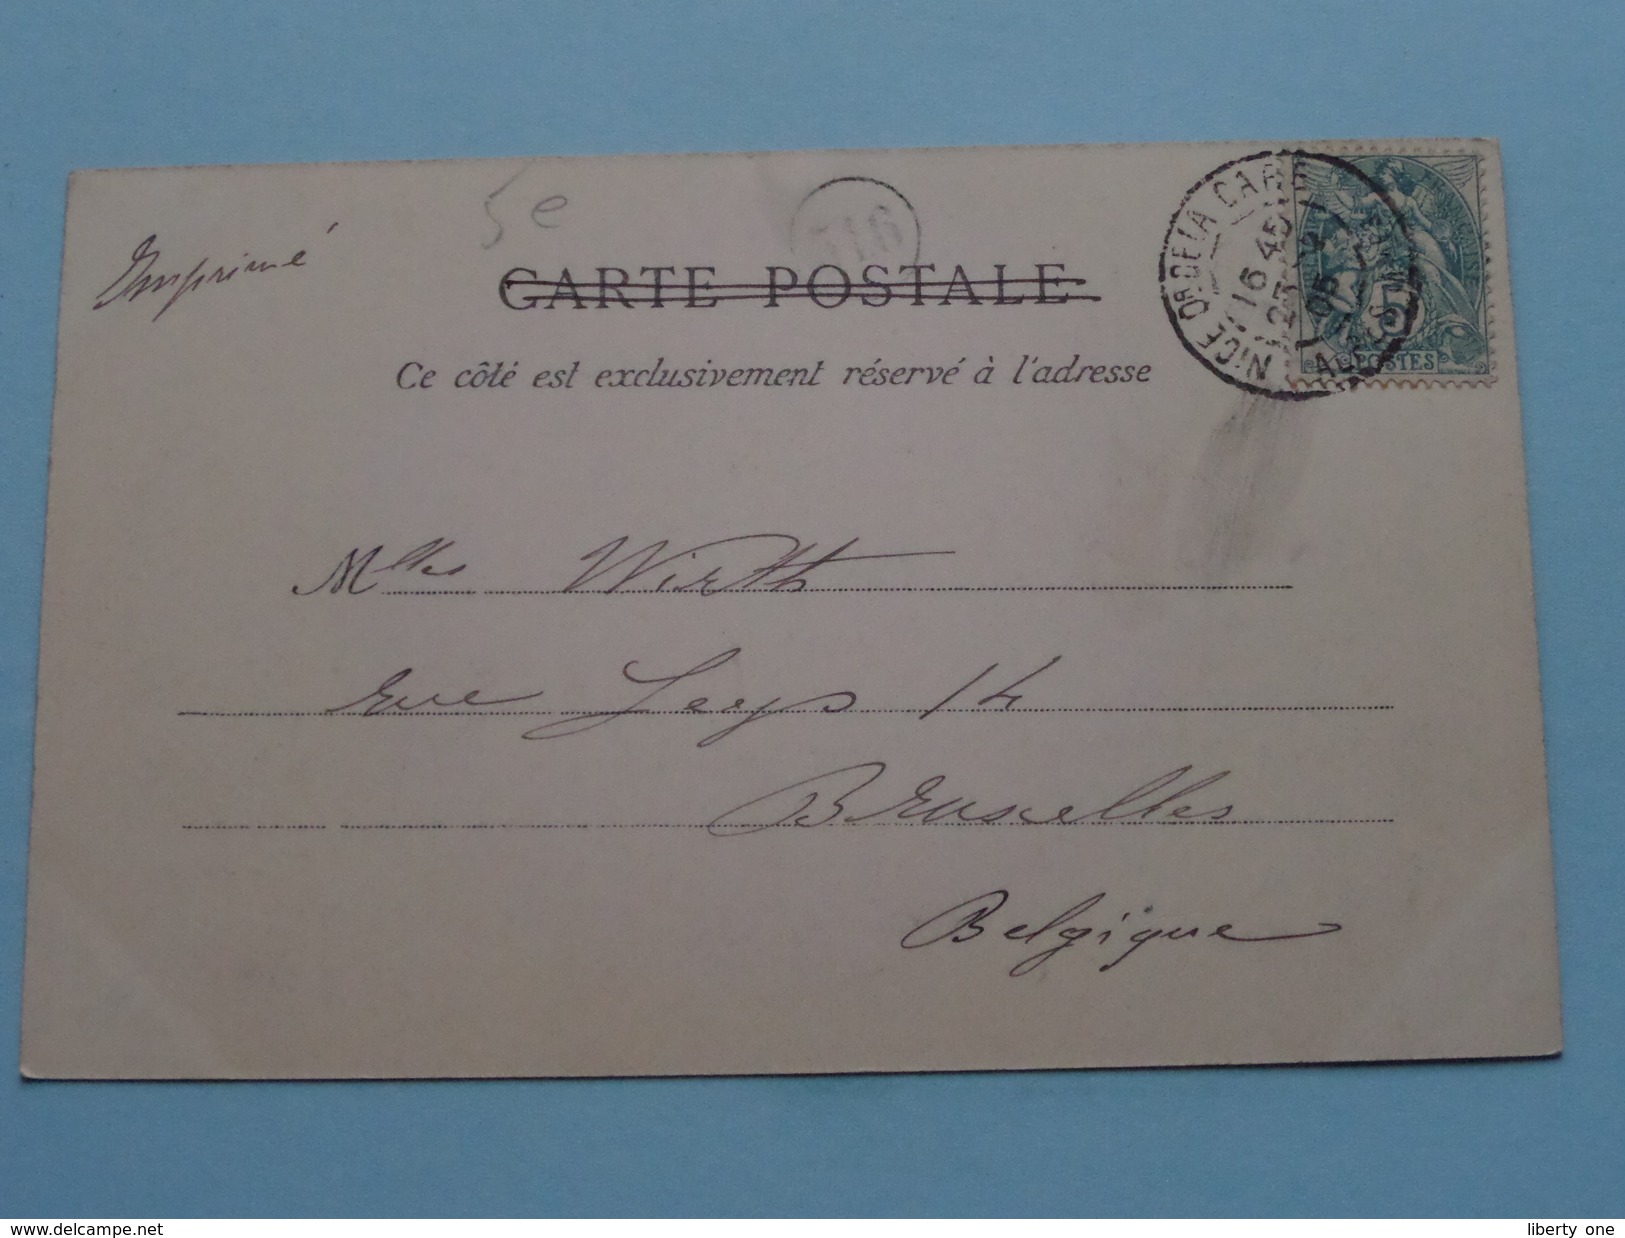 Imprimé
5e
116
CARTE POSTALE
Ce côté est exclusivement réservé à l'adresse
NICE PL. DE LA GARE
16 45
25
05
ALPES MARmes
5
POSTES
Mlles Wirth
rue Leys 14
Bruxelles
Belgique
www.delcampe.net
liberty_one